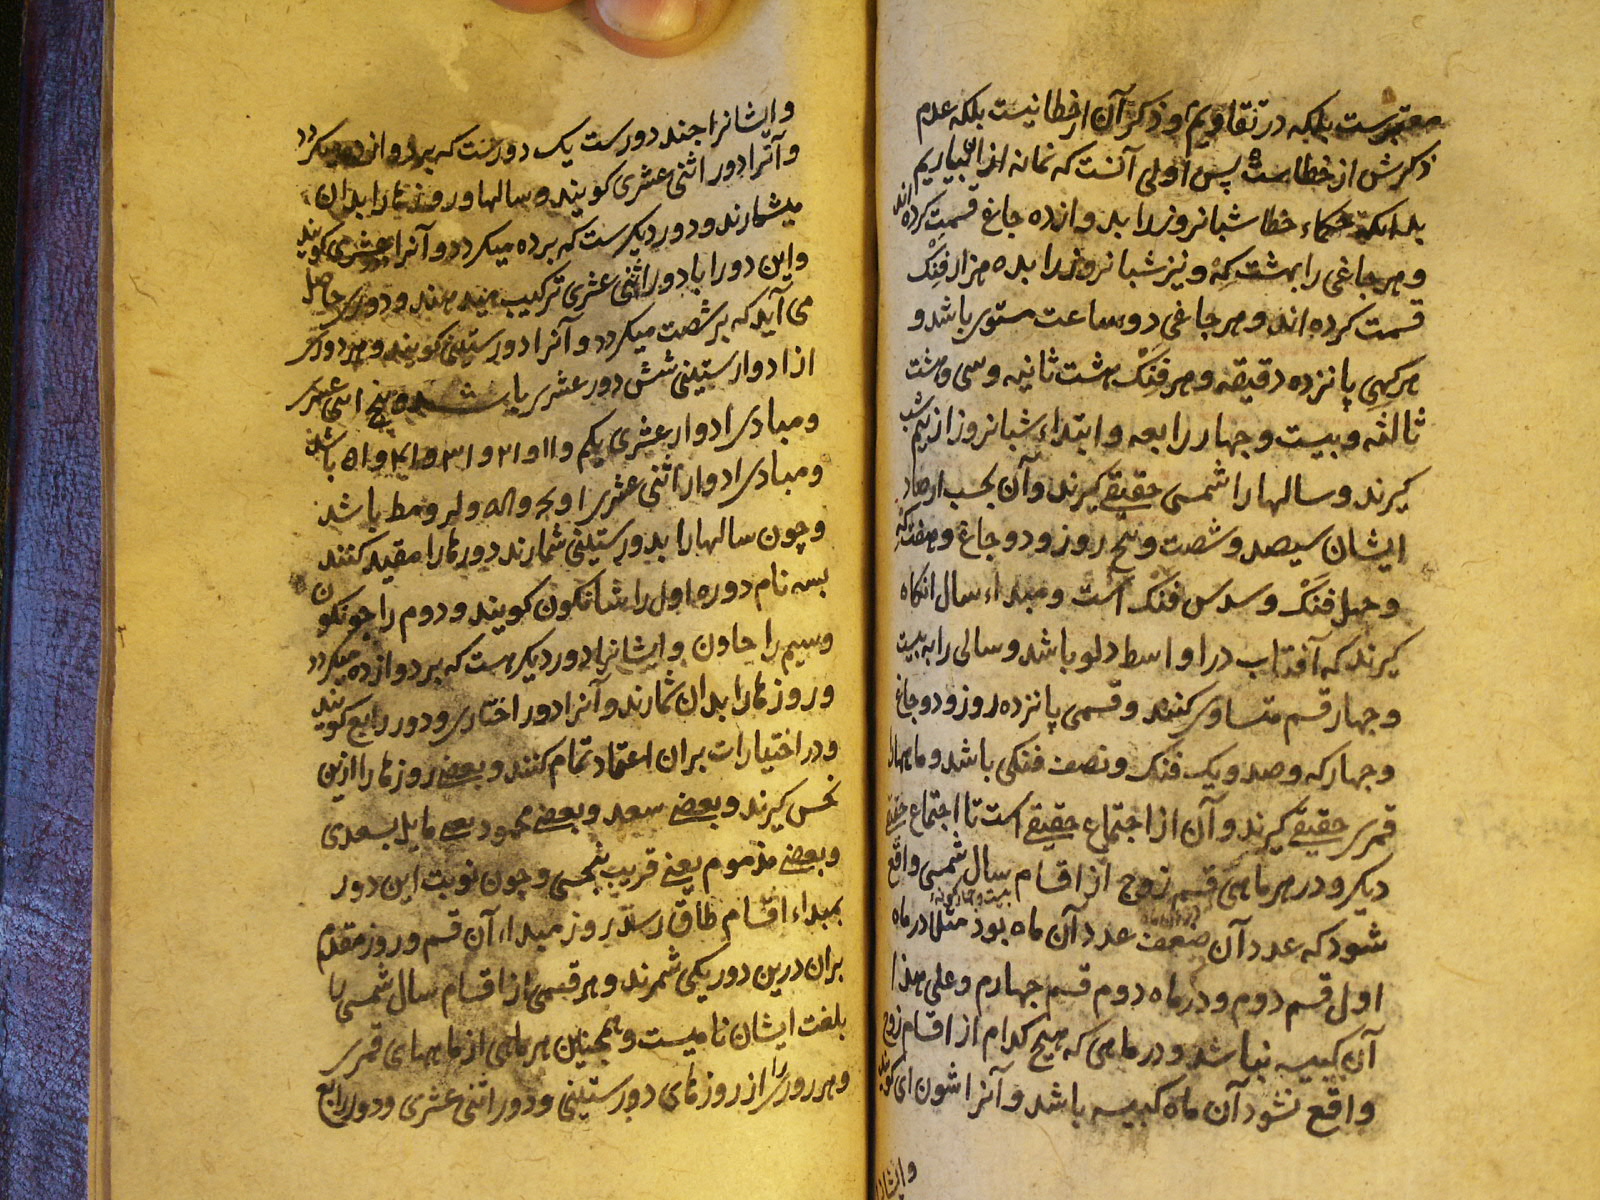 معتبرست بلکه در تقاویم و ذکر آن از خطا نیست بلکه عدم
ذکرش از خطاست پس اولی آنست که نمانه از
بدانکه حکماء خطا شبانروز را بدوازده جاغ قسمت کرده اند
و هر جاغی را بهشت که و نیز شبانروز را بده هزار فنک
قسمت کرده اند و هر جاغی دو ساعت مستوی باشد و
هر کهی پانزده دقیقه و هر فنک هشت ثانیه و سی و هشت
ثالثه و بیست و جهار رابعه و ابتداء شبانروز از نیم شب
کیرند و سالها را شمسی حقیقی کیرند و آن بحسب ارصاد
ایشان سیصد و شصت و پنج روز و دو جاغ و هفت که
و جهل فنک و سدس فنک است و مبداء سال انکاه
کیرند که آفتاب در اواسط دلو باشد و سالی را به بیست
و جهار قسم متساوی کنند و قسمی پانزده روز و دو جاغ
و جهار که و صد و یک فنک و نصف فنکی باشد و ماههارا
قمری حقیقی کیرند و آن از اجتماع حقیقی است تا اجتماع حقیقی
دیکر و در هر ماهی قسم زوج از اقسام سال شمسی واقع
بیست و جهارکونه
شود که عدد آن ضعف عدد آن ماه بود مثلا در ماه
اول قسم دوم و در ماه دوم قسم جهارم و علی هذا
آن کبیسه نباشد و در ماهی که هیچ کدام از اقسام زوج
واقع نشود آن ماه کبیسه باشد و آنرا شون ای کویند
وایشانرا
و ایشانرا جند دورست یک دورست که بر دوازده میکردد
و آنرا دور اثنی عشری کویند و سالها و روزها را بدان
میشمارند و دور دیکرست که بر ده میکردد و آنرا عشری کویند
و این دور را با دور اثنی عشری ترکیب میدهند و دوری حاصل
می آید که بر شصت میکردد و آنرا دور ستینی کویند و هر دوری
از ادوار ستینی شش دور عشری باشد و پنج اثنی عشری
و مبادی ادوار عشری یکم و ۱۱ و ۲۱ و ۳۱ و ۴۱ و ۵۱ باشد
و مبادی ادوار اثنی عشری ا و یج و اله و لر و مط باشد
و جون سالها را بدور ستینی شمارند دورها را مقید کنند
بسه نام دوره اول را شانکون کویند و دوم را جونکون
و سیم را خاون و ایشانرا دور دیکر هست که بر دوازده میکردد
و روزها را بدان شمارند و آنرا دور اختیاری و دور رابع کویند
و در اختیارات بران اعتماد تمام کنند و بعضی روزها را ازین
نحس کیرند و بعضی سعد و بعضی محمود یعنی مایل بسعدی
و بعضی مذموم یعنی قریب بنحسی و جون نوبت این دور
بمبداء اقسام طاق رسد روز مبداء آن قسم و روز مقدم
بران درین دور یکی شمرند و هر قسمی از اقسام سال شمسی را
بلغت ایشان نامیست و همجنین هر ماهی از ماههای قمری
و هر روزی را از روزهای دور ستینی و دور اثنی عشری و دور رابع